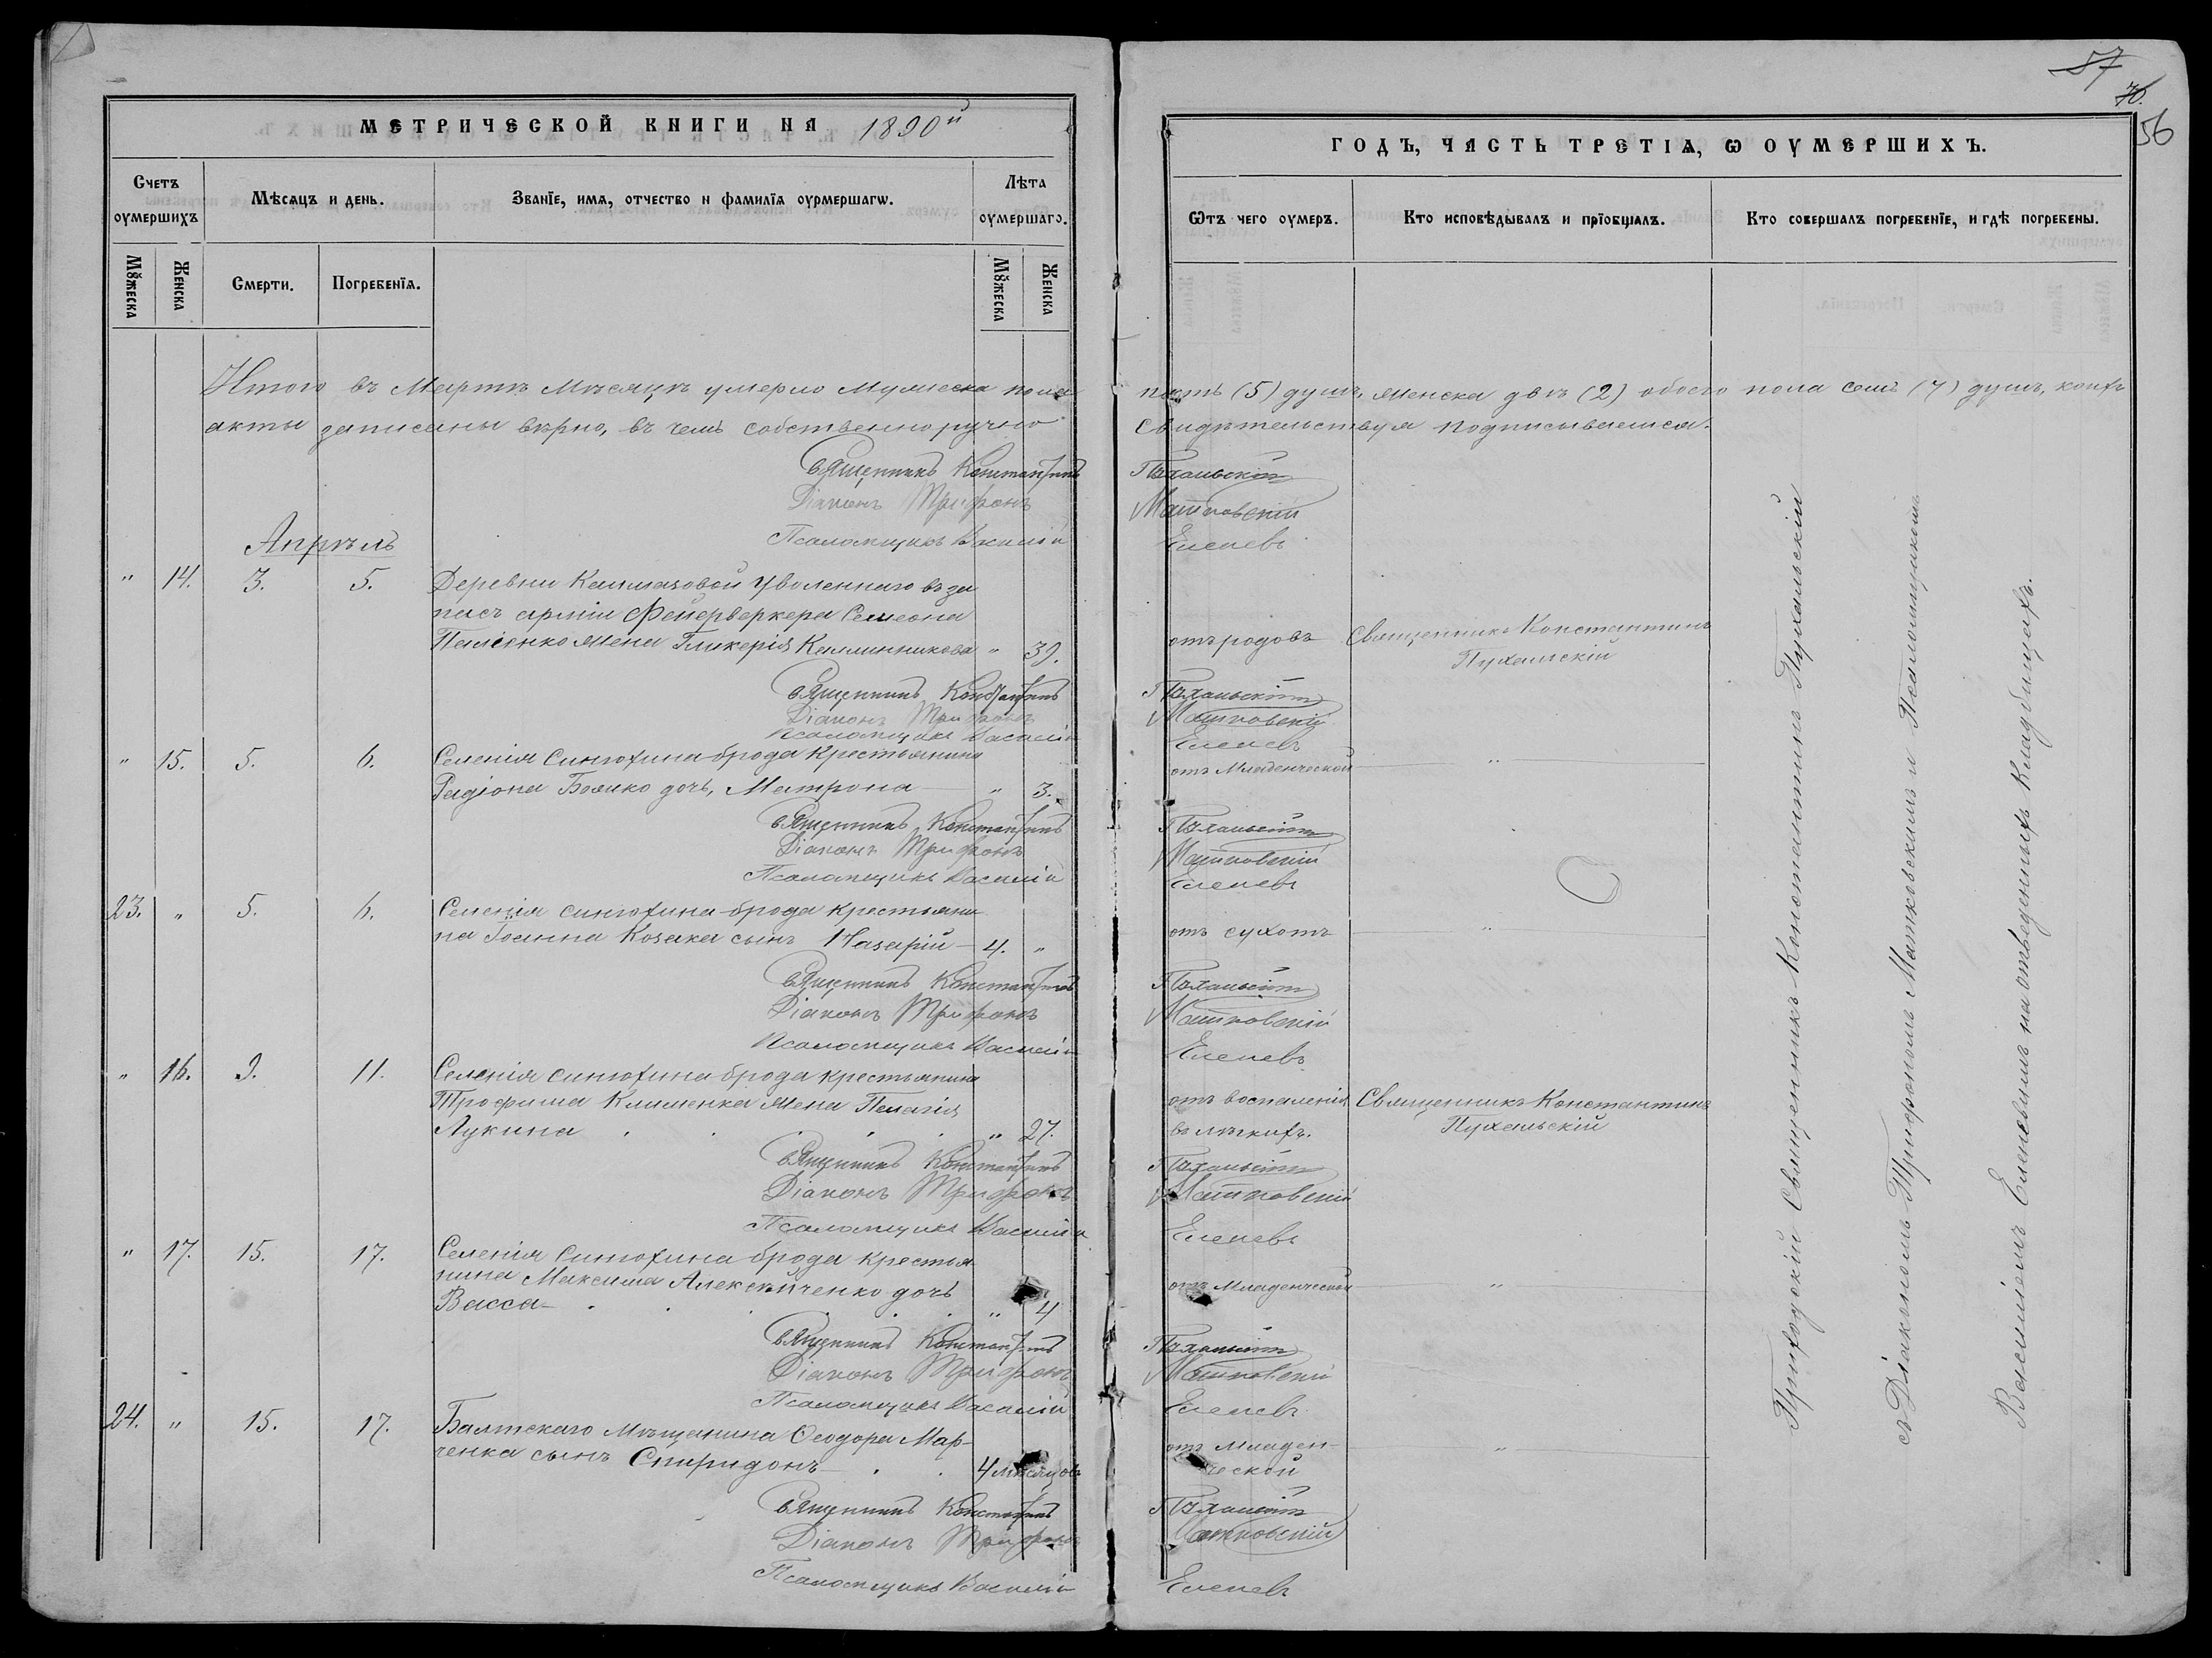 57
70.
56
МЕТРИЧЕСКОЙ КНИГИ НА 1890й
ГОДЪ, ЧАСТЬ ТРЕТІЯ, Ѡ ОУМЕРШИХЪ.
Счетъ оумершихъ
Мѣсяцъ и день.
Званіе, имя, отчество и фамилія оурмершагѡ.
Лѣта оумершаго.
Ѿтъ чего оумеръ.
Кто исповѣдывалъ и пріобщалъ.
Кто совершалъ погребеніе, и гдѣ погребены.
Мꙋжеска
Женска
Смерти.
Погребенія.
Мꙋжеска
Женска
Итого въ Мартѣ Мѣсяцѣ умерло Мужеска пола пять (5) душъ, женска двѣ (2) обоего пола семь (7) душъ, коихъ
акты записаны вѣрно, въ чемъ собственноручно свидѣтельствуя подписываемся.
Священникъ Константинъ Пухальскій
Діаконъ Трифонъ Матковскій
Псаломщикъ Василій Еленевъ
Апрѣль
" 14. 3. 5. Деревни Калмазовой Уволеннаго въ за
пасъ арміи Фейерверкера Семеона
Паленко жена Гликерія Каллинникова " 39. отъ родовъ Священникъ Константинъ
Пухальскій
Священникъ Константинъ Пухальскій
Діаконъ Трифонъ Матковскій
Псаломщикъ Василій Еленевъ
" 15. 5. 6. Селенія Синюхина-брода Крестьянина
Радіона Бойко дочь, Матрона " 3. отъ Младенческой "
Священникъ Константинъ Пухальскій
Діаконъ Трифонъ Матковскій
Псаломщикъ Василій Еленевъ
23. " 5. 6. Селенія Синюхина-брода крестьяни
на Іоанна Козака сынъ Назарій 4. " отъ сухотъ "
Священникъ Константинъ Пухальскій
Діаконъ Трифонъ Матковскій
Псаломщикъ Василій Еленевъ
" 16. 9. 11. Селенія Синюхина-брода крестьянина
Трофима Клименка жена Пелагія отъ воспаленія Священникъ Константинъ
Лукина " 27. въ легкихъ. Пухальскій
Священникъ Константинъ Пухальскій
Діаконъ Трифонъ Матковскій
Псаломщикъ Василій Еленевъ
" 17. 15. 17. Селенія Синюхина-брода Крестья
нина Максима Алексѣйченко дочь отъ Младенческой "
Васса " 4
Священникъ Константинъ Пухальскій
Діаконъ Трифонъ Матковскій
Псаломщикъ Василій Еленевъ
24. " 15. 17. Балтскаго Мѣщанина Ѳеодора Мар-
ченка сынъ Спиридонъ 4 мѣсяцовъ отъ Младен-
ческой "
Священникъ Константинъ Пухальскій
Діаконъ Трифонъ Матковскій
Псаломщикъ Василій Еленевъ
Приходскій Священникъ Константинъ Пухальскій
съ Діакономъ Трифономъ Матковскимъ и Псаломщикомъ
Василіемъ Еленевымъ на отведенныхъ Кладбищахъ.